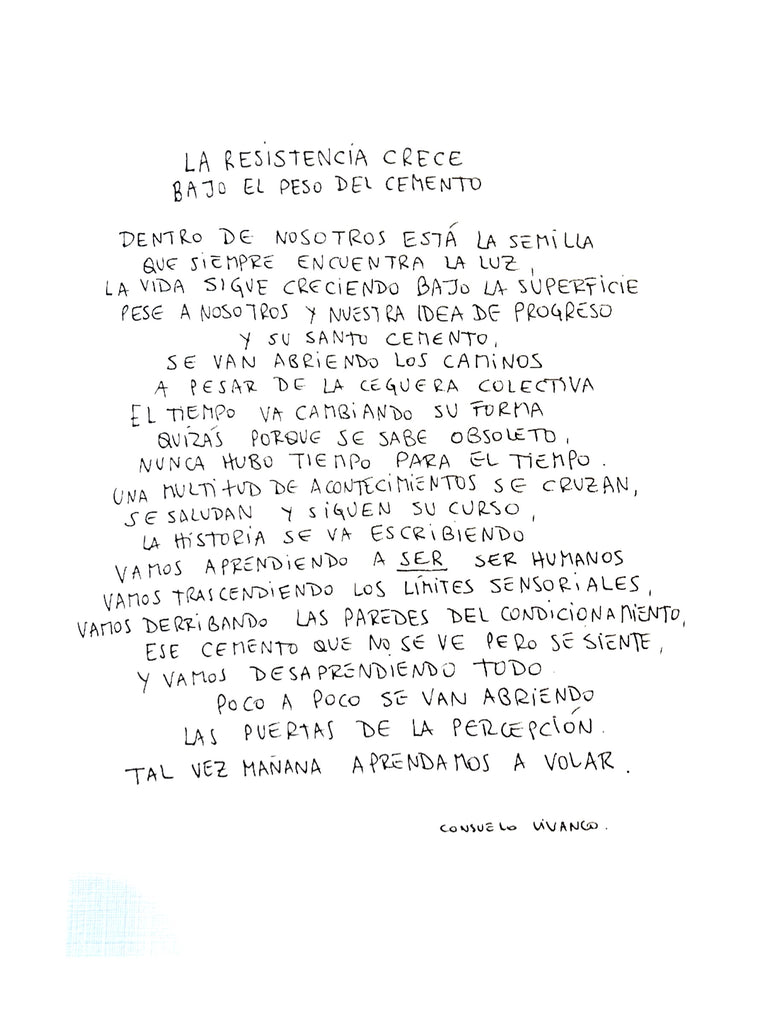 LA RESISTENCIA CRECE
BAJO EL PESO DEL CEMENTO
DENTRO DE NOSOTROS ESTÁ LA SEMILLA
QUE SIEMPRE ENCUENTRA LA LUZ,
LA VIDA SIGUE CRECIENDO BAJO LA SUPERFICIE
PESE A NOSOTROS Y NUESTRA IDEA DE PROGRESO
Y SU SANTO CEMENTO,
SE VAN ABRIENDO LOS CAMINOS
A PESAR DE LA CEGUERA COLECTIVA
EL TIEMPO VA CAMBIANDO SU FORMA
QUIZÁS PORQUE SE SABE OBSOLETO,
NUNCA HUBO TIEMPO PARA EL TIEMPO.
UNA MULTITUD DE ACONTECIMIENTOS SE CRUZAN,
SE SALUDAN Y SIGUEN SU CURSO,
LA HISTORIA SE VA ESCRIBIENDO
VAMOS APRENDIENDO A SER SER HUMANOS
VAMOS TRASCENDIENDO LOS LÍMITES SENSORIALES,
VAMOS DERRIBANDO LAS PAREDES DEL CONDICIONAMIENTO,
ESE CEMENTO QUE NO SE VE PERO SE SIENTE,
Y VAMOS DESAPRENDIENDO TODO.
POCO A POCO SE VAN ABRIENDO
LAS PUERTAS DE LA PERCEPCIÓN.
TAL VEZ MAÑANA APRENDAMOS A VOLAR.
CONSUELO VIVANCO.